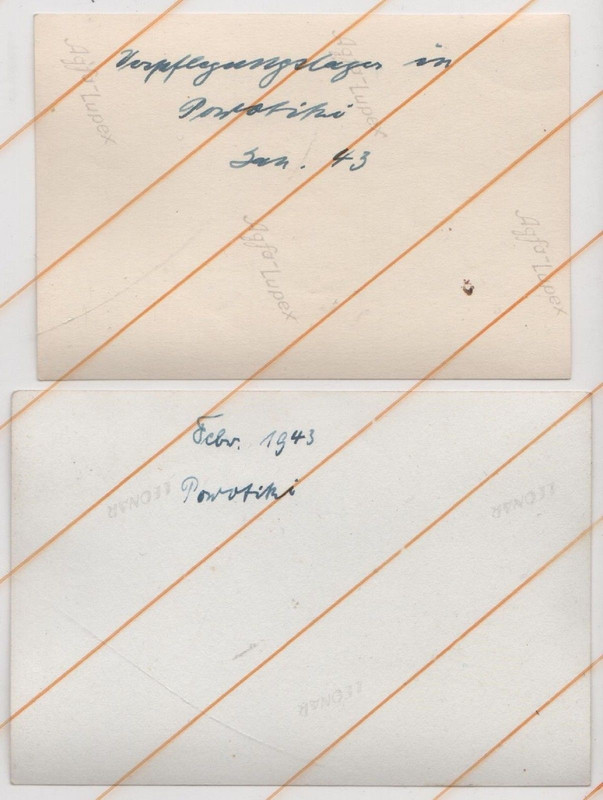 Verpflegungslager in
Powotiki
Jan. 43
Agfa-Lupex
Agfa-Lupex
Agfa-Lupex
Agfa-Lupex
Febr. 1943
Powotiki
LEONAR
LEONAR
LEONAR